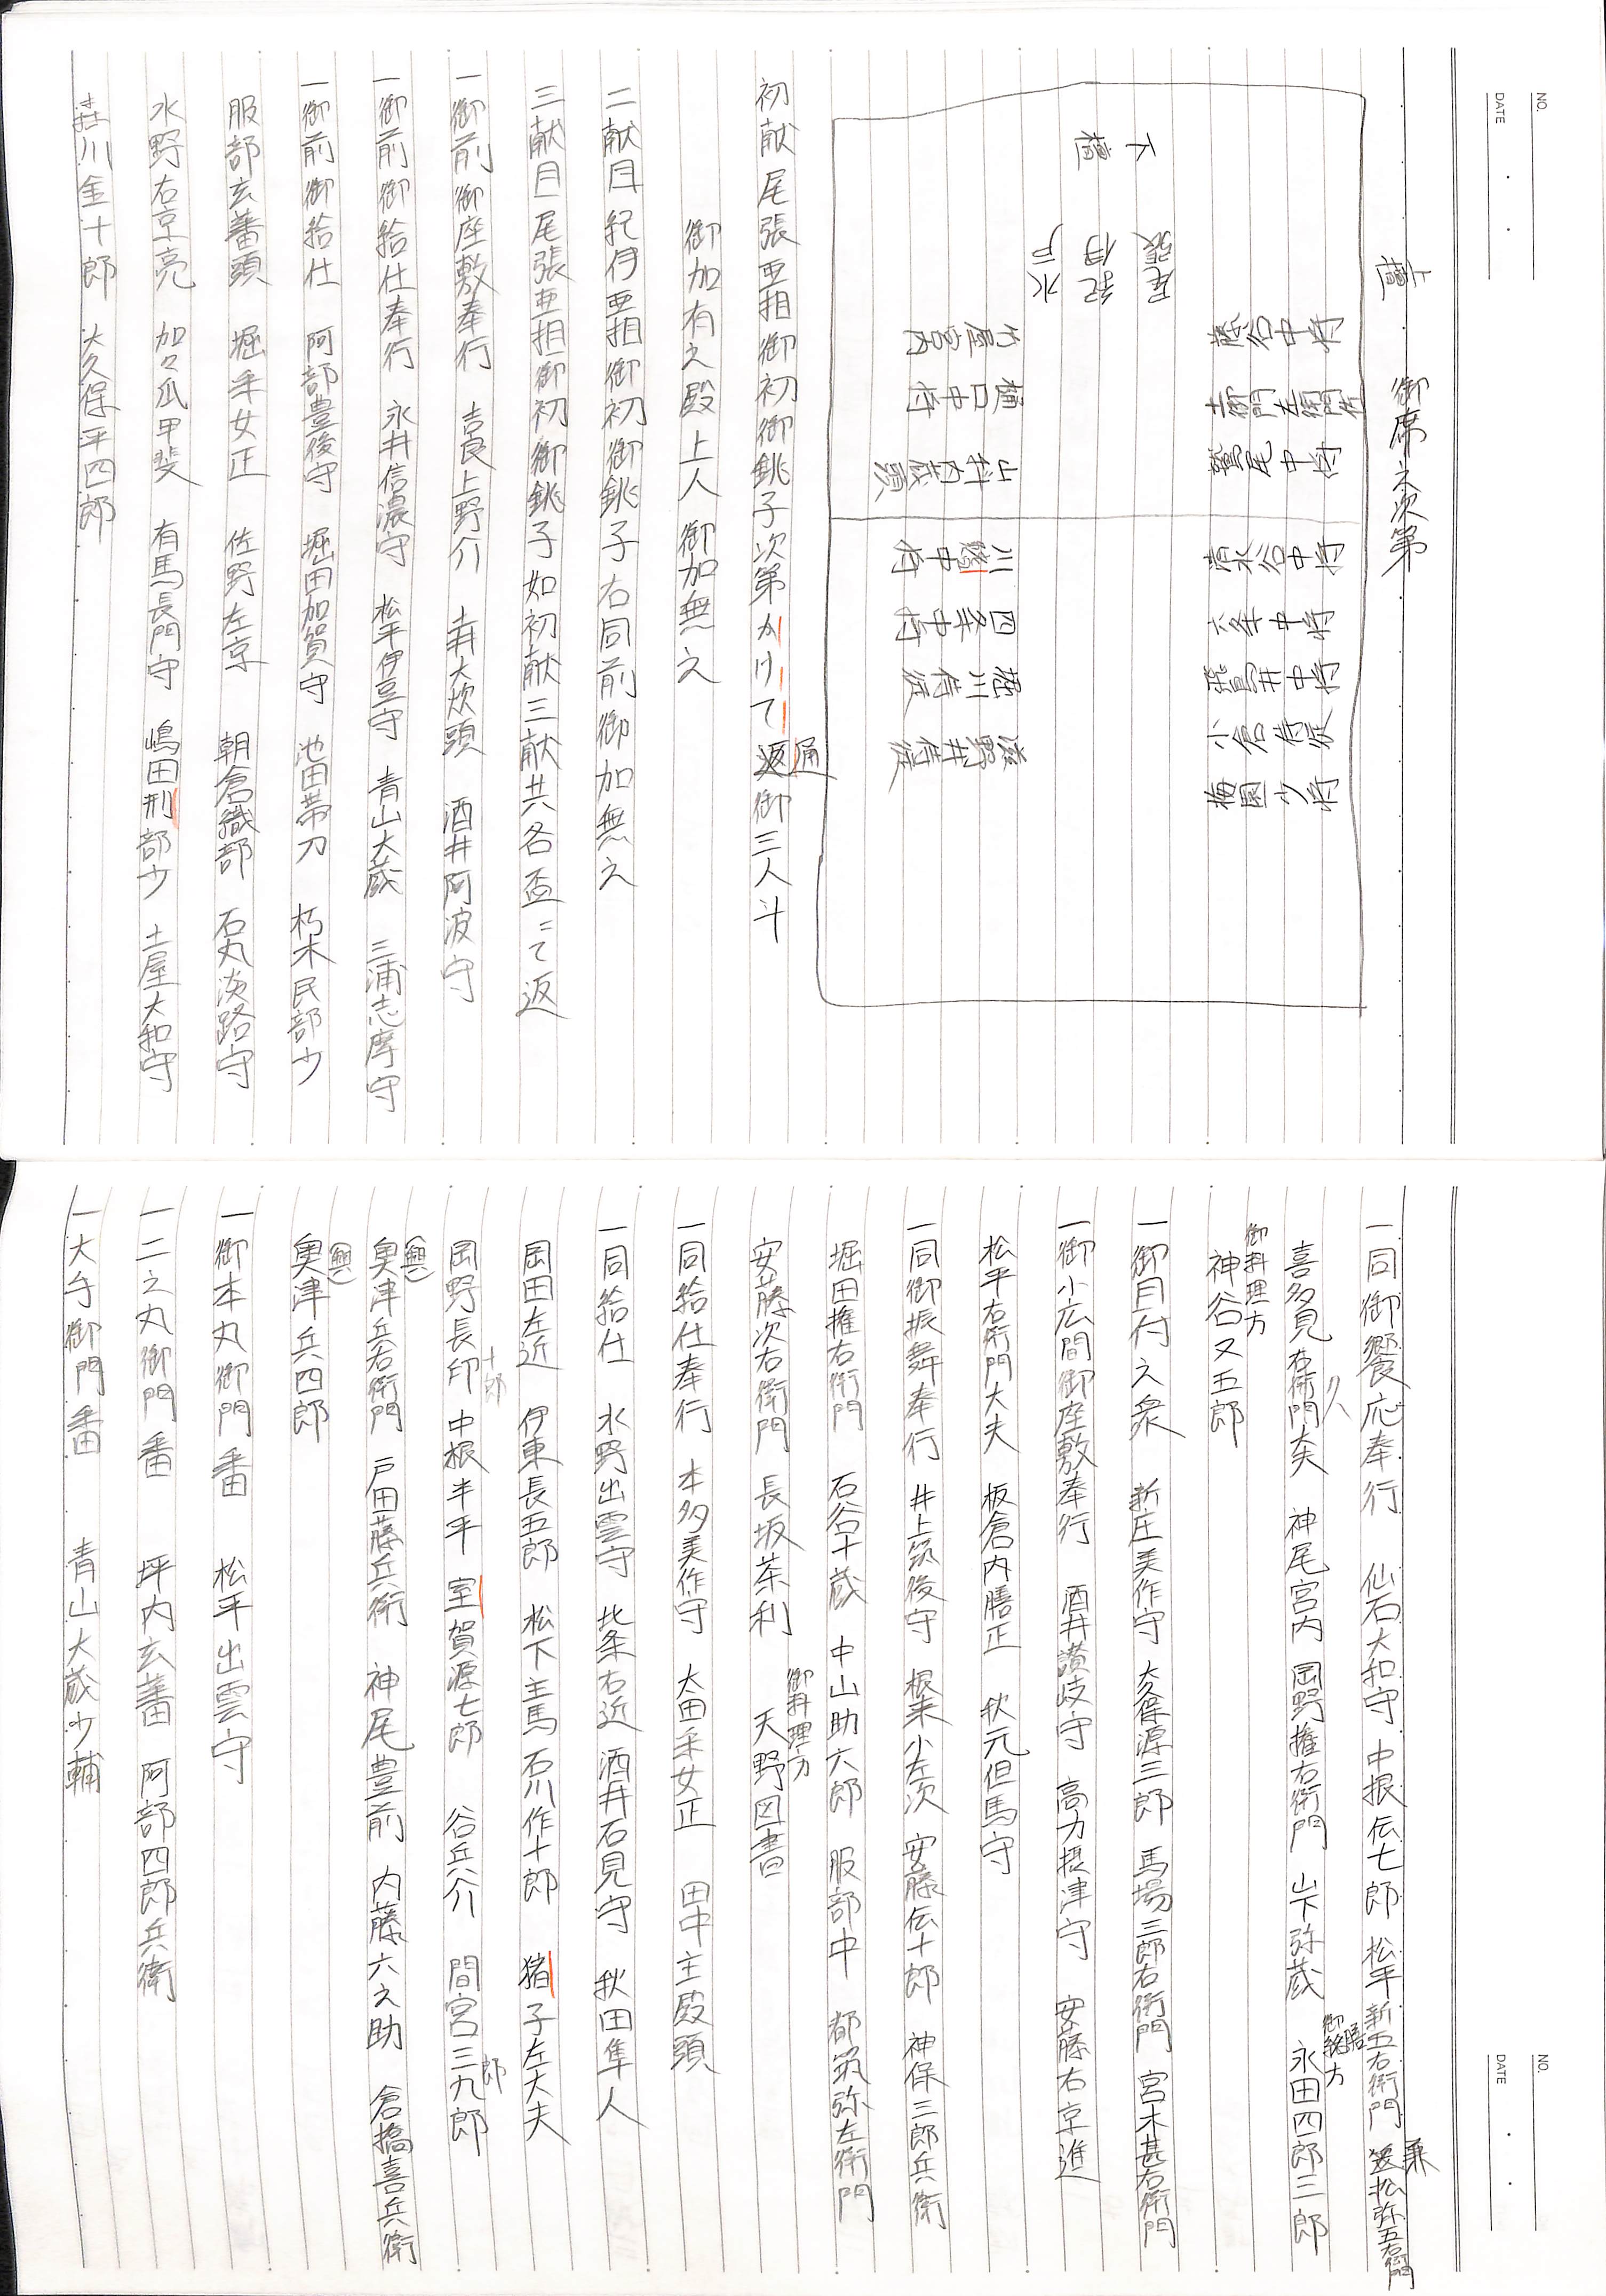 NO.
DATE
御席之次第
上檀
下檀
尾張
紀伊
水戸
藤谷中将
土御門左衛門佐
鷲尾中将
清水谷中将
六条中将
飛鳥井中将
小倉侍従
梅園少将
竹屋宮内
樋口中将
山科内蔵頭
川鰭中将
四条中将
堀川侍従
滋野井侍従
初献尾張亜相御初御銚子次第かけて返御三人斗
通
御加有之殿上人御加無之
二献目紀伊亜相御初御銚子右同前御加無之
三献目尾張亜相御初御銚子如初献三献共各盃ニて返
一御前御座敷奉行 吉良上野介 土井大炊頭 酒井阿波守
一御前御給仕奉行 永井信濃守 松平伊豆守 青山大蔵 三浦志摩守
一御前御給仕 阿部豊後守 堀田加賀守 池田帯刀 朽木民部少
服部玄蕃頭 堀采女正 佐野左京 朝倉織部 石丸淡路守
水野右京亮 加々爪甲斐 有馬長門守 嶋田刑部少 土屋大和守
荘川金十郎 大久保平四郎
NO.
DATE
一同御饗応奉行 仙石大和守 中根伝七郎 松平新五右衛門 兼松弥五右衛門
喜多見久右衛門大夫 神尾宮内 岡野権右衛門 山下弥蔵 御膳方 永田四郎三郎
御料理方
神谷又五郎
一御目付之衆 新庄美作守 大久保源三郎 馬場三郎右衛門 宮木甚右衛門
一御小広間御座敷奉行 酒井讃岐守 高力摂津守 安藤右京進
松平右衛門大夫 板倉内膳正 秋元但馬守
一同御振舞奉行 井上筑後守 根来小左次 安藤伝十郎 神保三郎兵衛
堀田権右衛門 石谷十蔵 中山助六郎 服部中 都筑弥左衛門
安藤次右衛門 長坂茶利 御料理方 天野図書
一同給仕奉行 本多美作守 太田采女正 田中主殿頭
一同給仕 水野出雲守 北条右近 酒井石見守 秋田隼人
岡田左近 伊東長五郎 松下主馬 石川作十郎 猪子左大夫
岡野長印 十郎 中根半平 室賀源七郎 谷兵介 間宮三九郎 郎
奥津兵右衛門 (興) 戸田藤兵衛 神尾豊前 内藤六之助 倉橋喜兵衛
奥津兵四郎 (興)
一御本丸御門番 松平出雲守
一二之丸御門番 坪内玄蕃 阿部四郎兵衛
一大手御門番 青山大蔵少輔